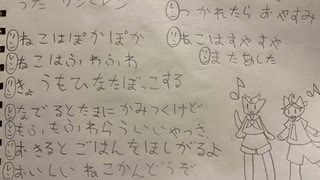 つかれたら おやすみ
ねこはぽかぽか
ねこはすやすや
ねこはふわふわ
またあした
きょうもひなたぼっこする
なでるとたまにかみつくけど
もふもふわらういいやっさ
おきるとごはんをほしがるよ
おいしいねこかんどうぞ